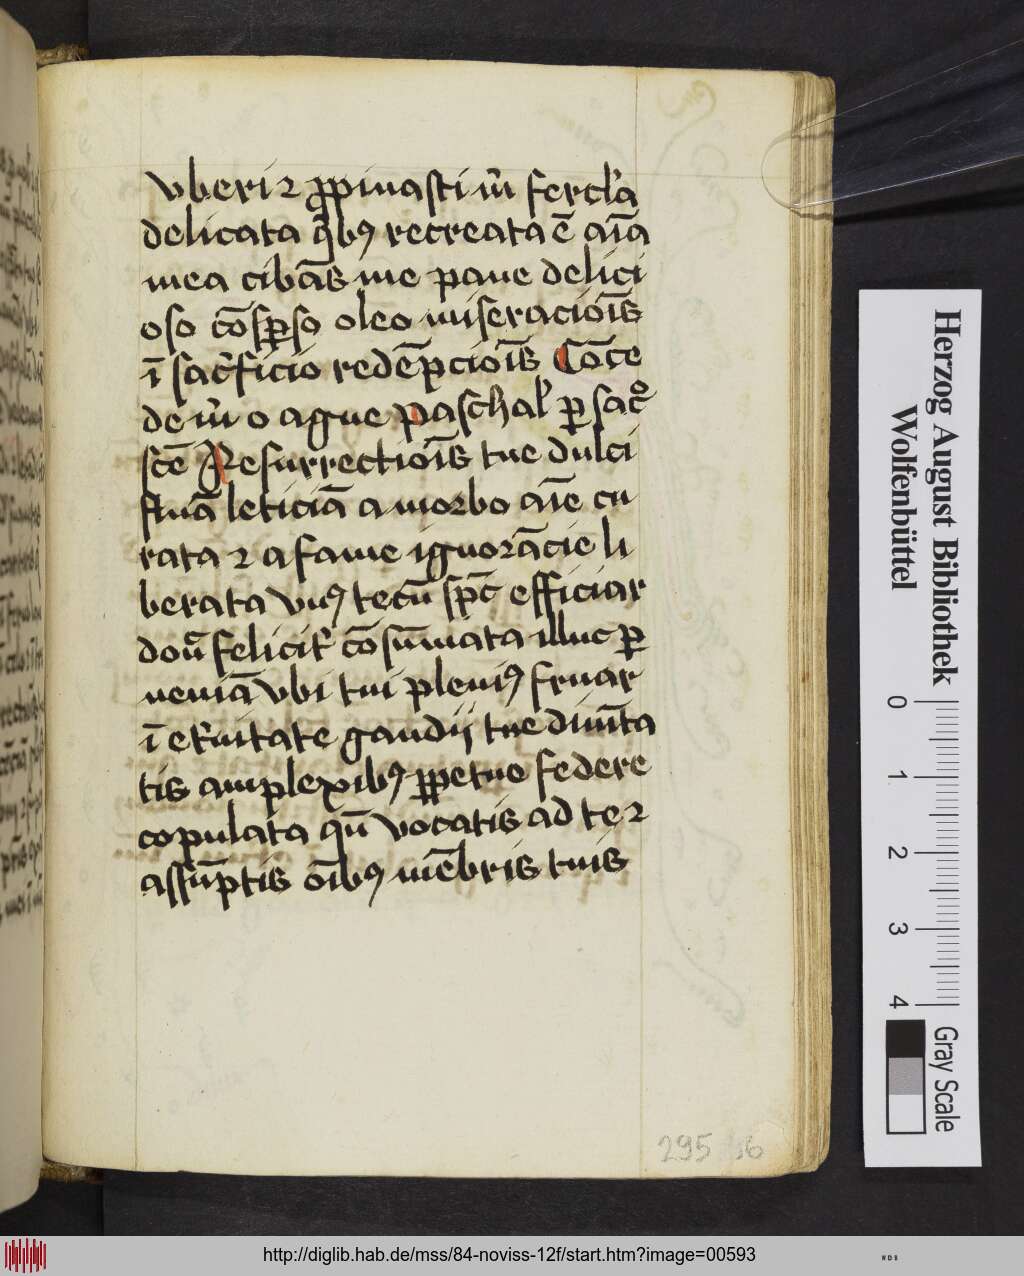 vberi ⁊ ꝓpinasti m̄ fercl'a
delicata qͥbꝰ recreata ē aīa
mea cibās me pane delici
oso cōsꝑso oleo miseracioīs
ī sac̄ficio redēpcioīs Cōce
de m̄ o agne paschal' ꝑ sac̄
sc̄e Resurrectioīs tue dulci
fluā leticiā a morbo aīe cu
rata ⁊ a fame ignorācie li
berata vnꝰ tecū sp̄c efficiar
donc̄ felicit' cōsūmata illuc ꝑ
ueniā vbi tui pleniꝰ fruar
ī et'nitate gaudij tue diuīta
tis amplexibꝰ ꝑpetuo federe
copulata qū vocatis ad te ⁊
assūptis oībꝰ mēbris tuis
295
Herzog August Bibliothek
Wolfenbüttel
0 1 2 3 4
Gray Scale
http://diglib.hab.de/mss/84-noviss-12f/start.htm?image=00593